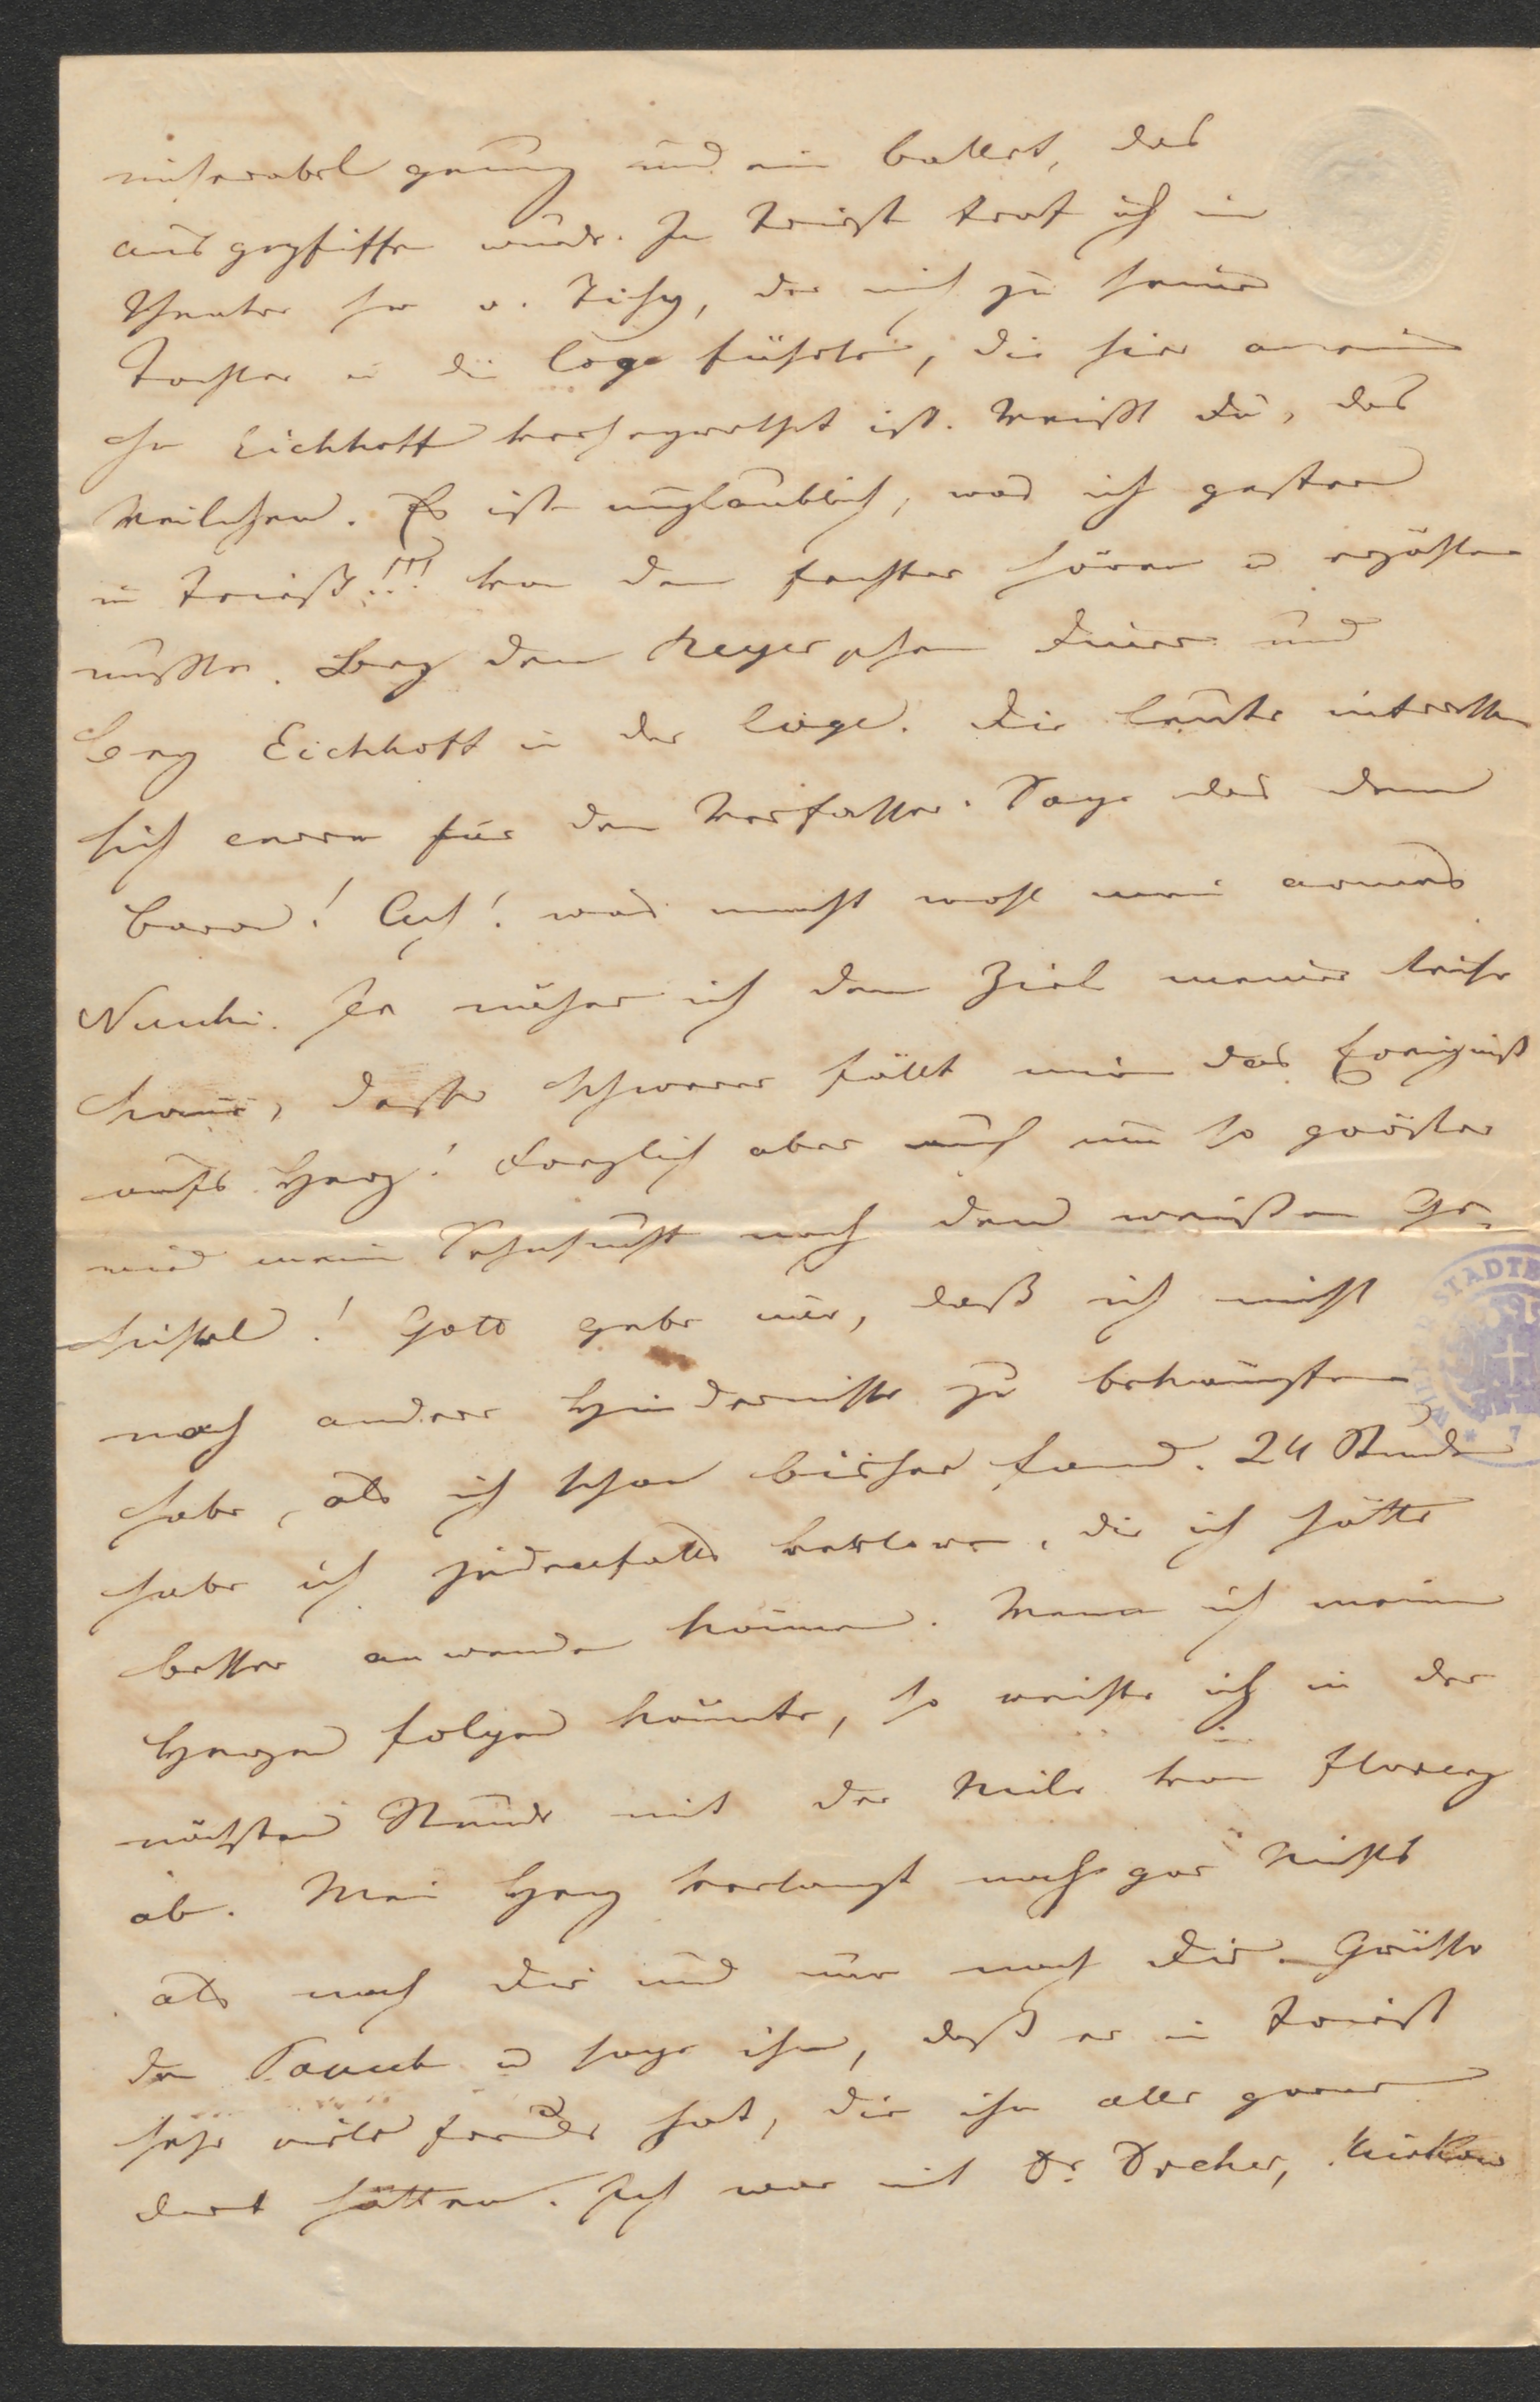 miserabel genug und ein Ballet, das
ausgepfiffen wurde. In Triest traf ich im
Theater H v. Tichy, der mich zu seiner
Tochter in die Loge führte, die hier an einen
H Eichhoff verheyrathet ist. Weißt Du, das
Veilchen. Es ist unglaublich, was ich gestern
in Triest!!! von dem Fechter hören u erzählen
mußte. Bey dem Reyer schen Diner und
bey Eichhoff in der Loge. Die Leute
sich enorm für den Verfasser. Sage das dem
Baron! Ach! was macht wohl mein armes
Nuschi. Je näher ich dem Ziel meiner Reise
komme, desto schwerer fällt mir das Ereigniß
aufs Herz! Folglich aber auch um so größer
wird meine Sehnsucht nach dem weißen Ge-
sichtel! Gott gebe nur, daß ich nicht
noch andere Hindernisse zu bekämpfen
habe, als ich schon bisher fand. 24 Stunden
habe ich jedenfalls verloren, die ich hätte
besser anwenden können. Wenn ich meinem
Herzen folgen könnte, so reiste ich in der
nächsten Stunde mit der Meile von Florenz
ab. Mein Herz verlangt nach gar Nichts
als nach Dir und nur nach Dir. Grüße
den u sage ihm, daß er in Triest
sehr viele Freunde hat, die ihn alle gerne
dort hätten. Ich war mit Dr. Dreher,